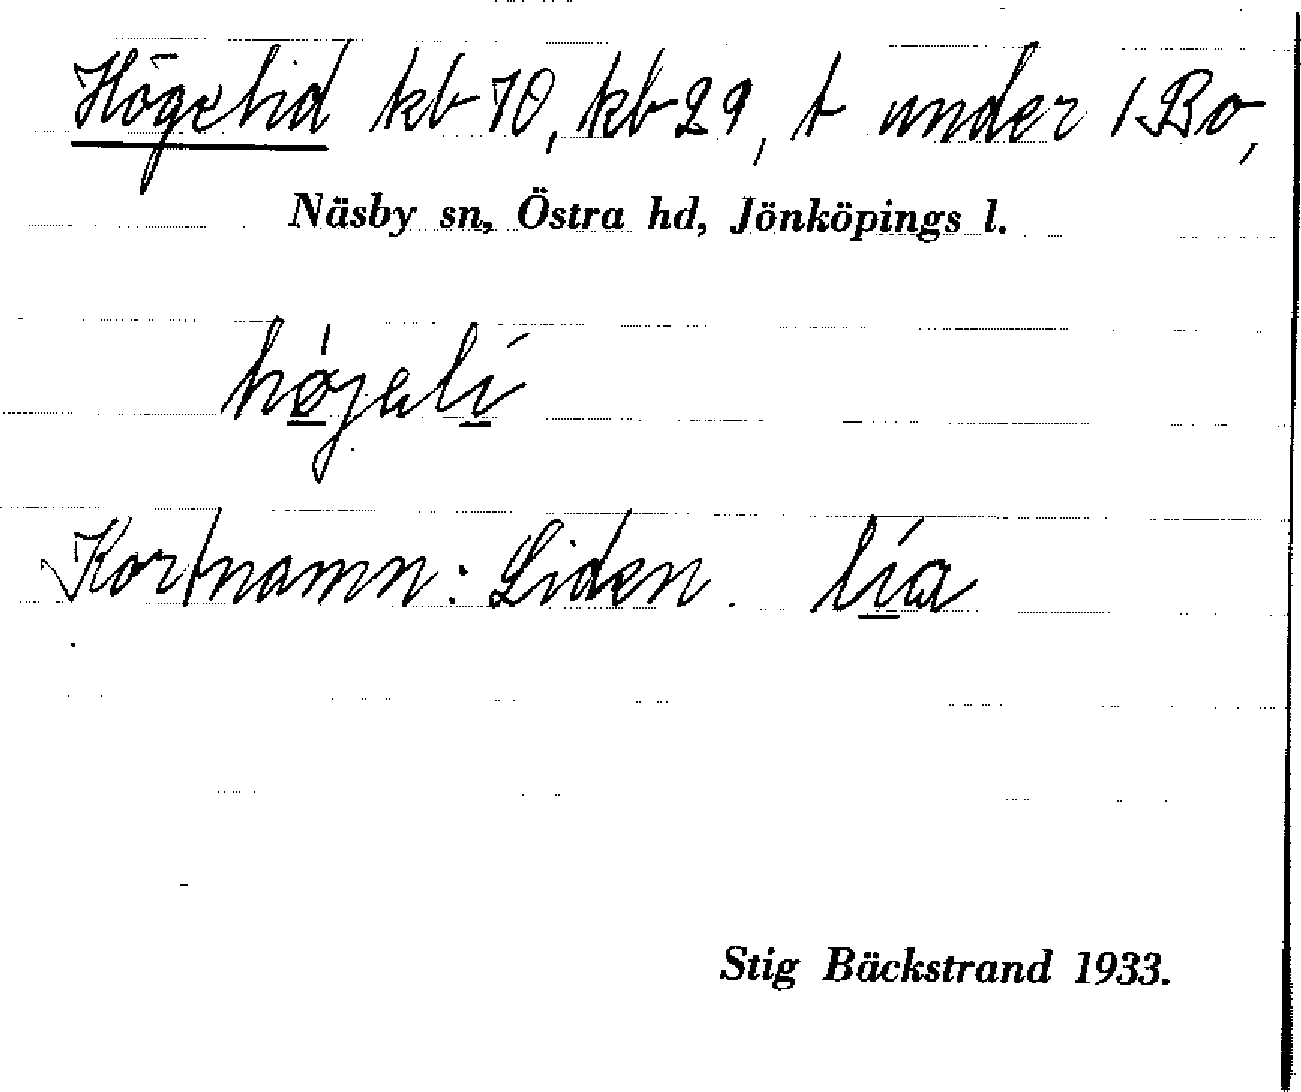 Högelid kb 70, kb 29, t under 1 Bo,
Näsby sn, Östra hd, Jönköpings l.
højəlí
Kortnamn: Liden. lía
Stig Bäckstrand 1933.